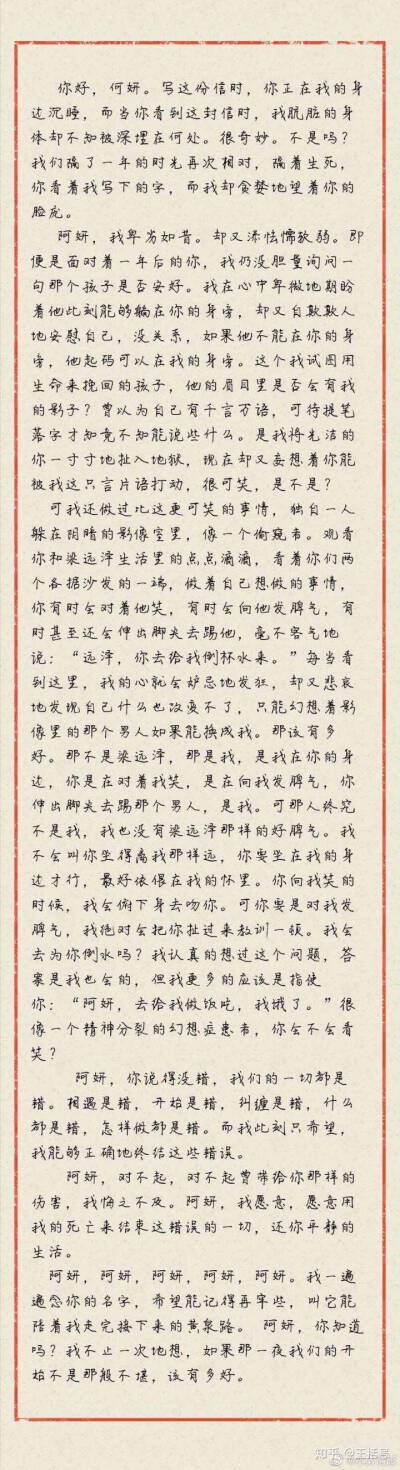 你好，何妍。写这份信时，你正在我的身
边沉睡，而当你看到这封信时，我肮脏的身
体却不知被深埋在何处。很奇妙。不是吗？
我们隔了一年的时光再次相对，隔着生死，
你看着我写下的字，而我却贪婪地望着你的
脸庞。
阿妍，我卑劣如昔。却又添怯懦软弱。即
便是面对着一年后的你，我仍没胆量询问一
句那个孩子是否安好。我在心中卑微地期盼
着他此刻能够躺在你的身旁，却又自欺欺人
地安慰自己，没关系，如果他不能在你的身
旁，他起码可以在我的身旁。这个我试图用
生命来挽回的孩子，他的眉目里是否会有我
的影子？曾以为自己有千言万语，可待提笔
落字才知竟不知能说些什么。是我将光洁的
你一寸寸地扯入地狱，现在却又妄想着你能
被我这只言片语打动，很可笑，是不是？
可我还做过比这更可笑的事情，独自一人
躲在阴暗的影像室里，像一个偷窥者。观看
你和梁远泽生活里的点点滴滴，看着你们两
个各据沙发的一端，做着自己想做的事情，
你有时会对着他笑，有时会向他发脾气，有
时甚至还会伸出脚尖去踢他，毫不客气地
说：“远泽，你去给我倒杯水来。”每当看
到这里，我的心就会妒忌地发狂，却又悲哀
地发现自己什么也改变不了，只能幻想着影
像里的那个男人如果能换成我。那该有多
好。那不是梁远泽，那是我，是我在你的身
边，你是在对着我笑，是在向我发脾气，你
伸出脚尖去踢那个男人，是我。可那人终究
不是我，我也没有梁远泽那样的好脾气。我
不会叫你坐得离我那样远，你要坐在我的身
边才行，最好依偎在我的怀里。你向我笑的
时候，我会俯下身去吻你。可你要是对我发
脾气，我绝对会把你扯过来教训一顿。我会
去为你倒水吗？我认真的想过这个问题，答
案是我也会的，但我更多的应该是指使
你：“阿妍，去给我做饭吃，我饿了。”很
像一个精神分裂的幻想症患者，你会不会看
笑？
阿妍，你说得没错，我们的一切都是
错。相遇是错，开始是错，纠缠是错，什么
都是错，怎样做都是错。而我此刻只希望，
我能够正确地终结这些错误。
阿妍，对不起，对不起曾带给你那样的
伤害，我悔之不及。阿妍，我愿意，愿意用
我的死亡来结束这错误的一切，还你平静的
生活。
阿妍，阿妍，阿妍，阿妍，阿妍。我一遍
遍念你的名字，希望能记得再牢些，叫它能
陪着我走完接下来的黄泉路。 阿妍，你知道
吗？我不止一次地想，如果那一夜我们的开
始不是那般不堪，该有多好。
知乎